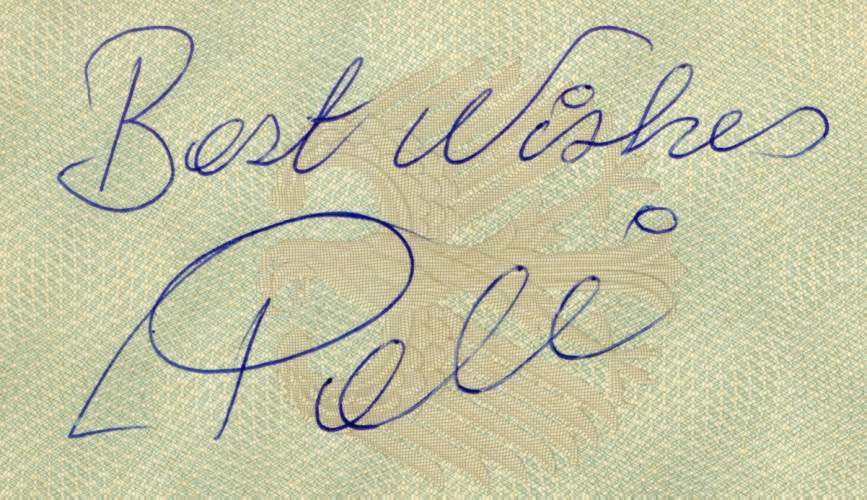 Best Wishes
Pelé